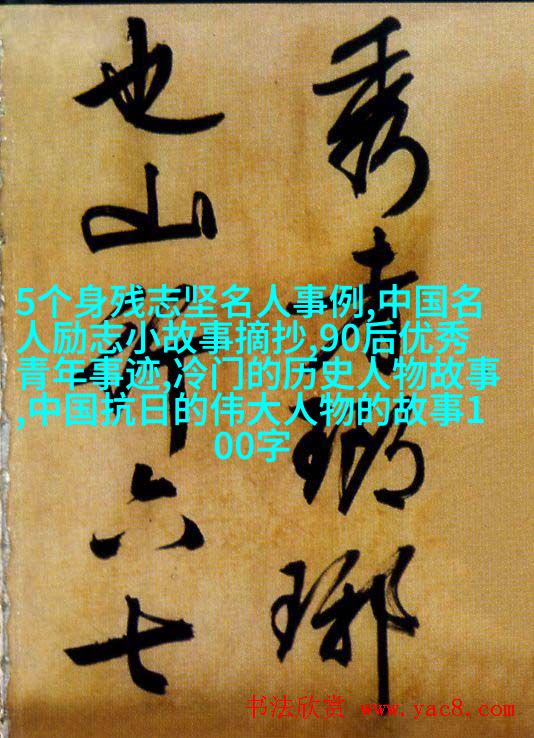 秀者瑯琊
也山行六七
5个身残志坚名人事例,中国名
人励志小故事摘抄,90后优秀
青年事迹,冷门的历史人物故事
,中国抗日的伟大人物的故事1
00字
书法欣赏 www.yac8.com